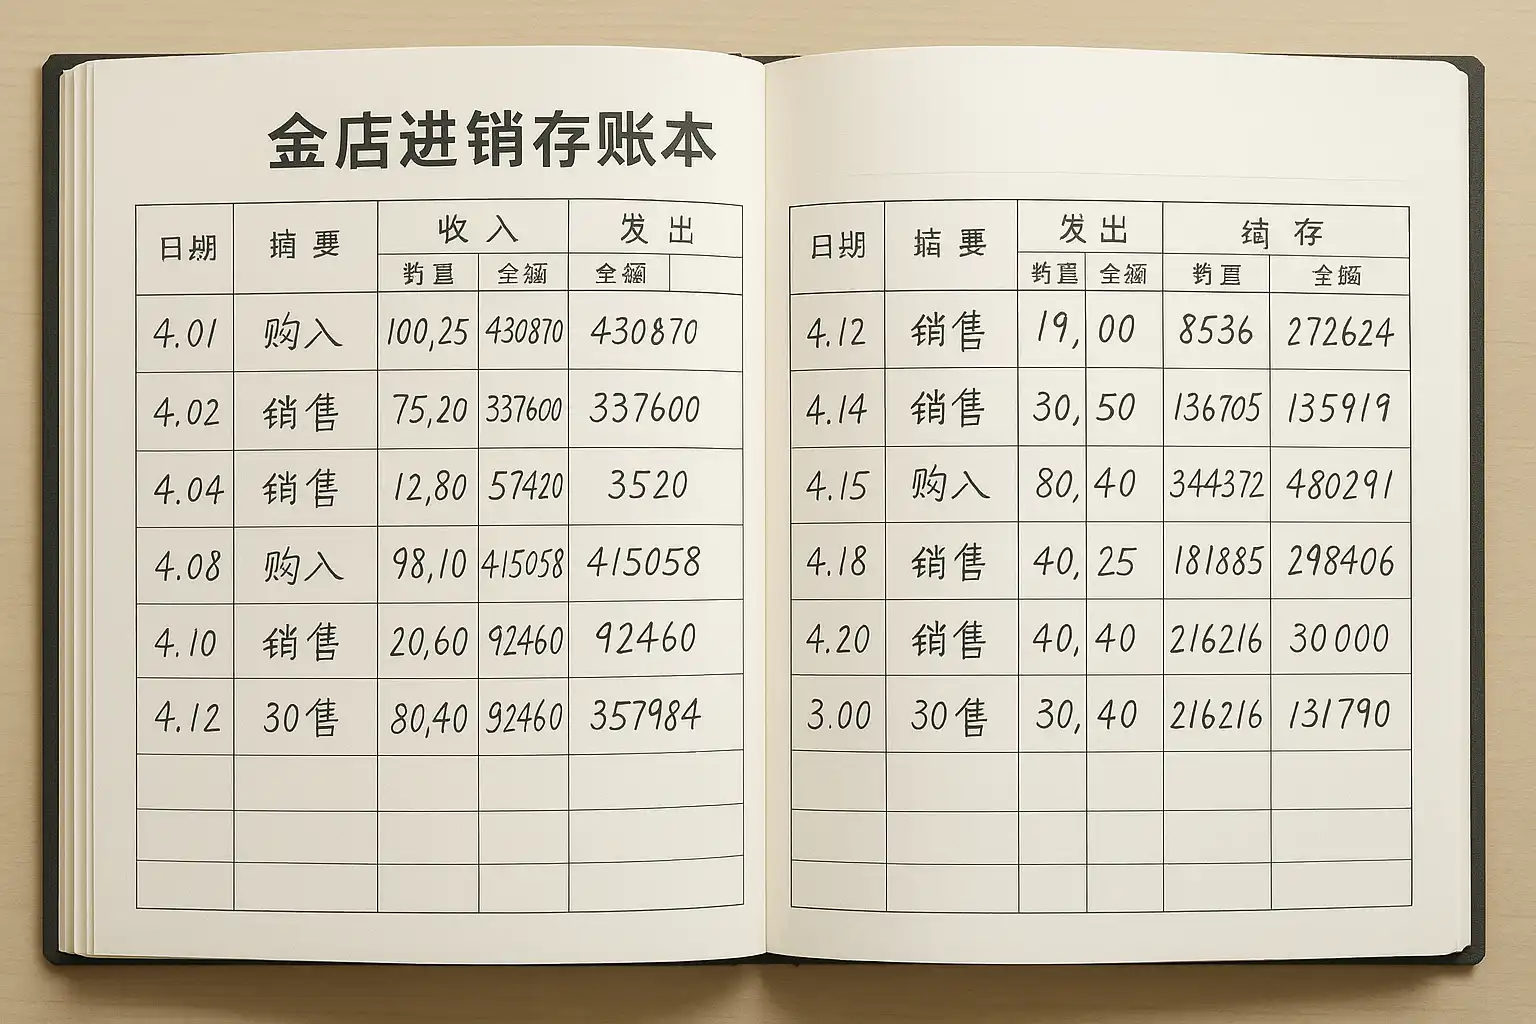 金店进销存账本
日期 摘要 收入 发出
全
4.01 购入 100,25 430870 430870
4.02 销售 75,20 337600 337600
4.04 销售 12,80 57420 3520
4.08 购入 98,10 415058 415058
4.10 销售 20,60 92460 92460
4.12 30售 80,40 92460 357984
日期 要 发出 存
全
4.12 销售 19, 00 8536 272624
4.14 销售 30, 50 136705 135919
4.15 购入 80, 40 344372 480291
4.18 销售 40, 25 181885 298406
4.20 销售 40, 40 216216 30000
3.00 30售 30, 40 216216 131790